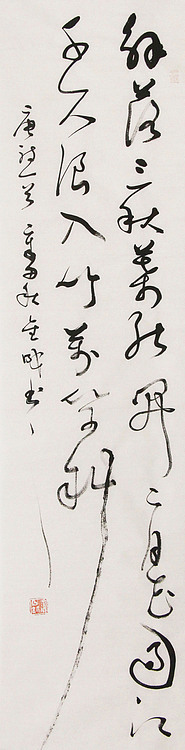 解落三秋葉能開二月花過江
千尺浪入竹萬竿斜
唐詩一首 秋 書